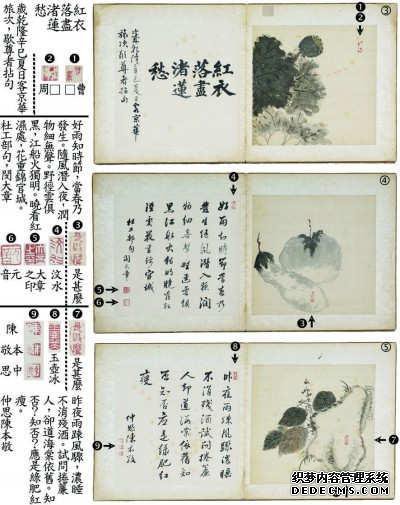 紅衣
落盡
渚蓮
愁
歲乾隆辛巳夏日客京華
旅次,歇尊者拈句
❶ 曹□
❷ 周□
好雨知時節,當春乃
發生。隨風潛入夜,潤
物細無聲。野徑雲俱
黑,江船火獨明。曉看紅
濕處,花重錦官城。
杜工部句,閔大章
❸ 是甚麼
❹ 汶水
❺ 大章之印
❻ 元音
昨夜雨疎風驟,濃睡
不消殘酒。試問捲簾
人,卻道海棠依舊。知
否?知否?應是綠肥紅
瘦。
仲思陳本敬
❼ 是甚麼
❽ 玉壺冰
❾ 陳本中敬思
③
❶
❷
紅衣
落盡
渚蓮
愁
④
❹
好雨知時節當春乃
發生隨風潛入夜潤
物細無聲野徑雲俱
黑江船火獨明曉看紅
濕處花重錦官城
杜工部句閔大章
❺
❻
❸
⑤
❽
昨夜雨疎風驟濃睡
不消殘酒試問捲簾
人卻道海棠依舊知
否知否應是綠肥紅
瘦
仲思陳本敬
❾
❼
织梦内容管理系统
DEDECMS.COM